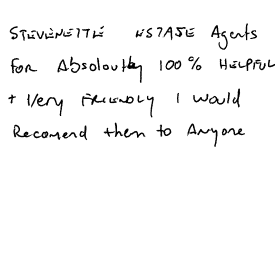 STEVENETTE ESTATE Agents
FOR Absoloutly 100% HELPFUL
+ Very FRIENDLY I Would
Recomend them to Anyone